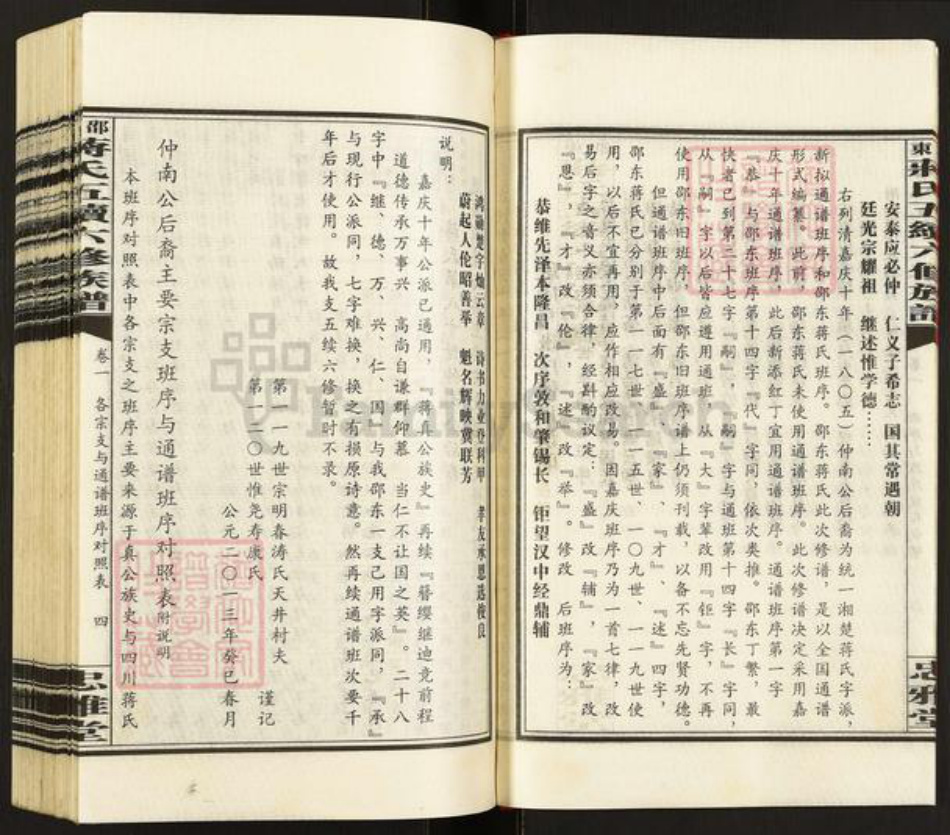 東蔣氏五續六修族譜
忠雅堂
安泰应必仲　仁义子希志　国其常遇朝
廷光宗耀祖　继述惟学德……
右列清嘉庆十年（一八〇五）仲南公后裔为统一湘楚蒋氏字派，
新拟通谱班序和邵东蒋氏班序。邵东蒋氏此次修谱，是以全国通谱
形式编纂。此前，邵东蒋氏未使用通谱班序。此次修谱决定采用嘉
庆十年通谱班序，此后新添红丁宜用通谱班序。通谱班序第一字
『恭』与邵东班序第十四字『代』字同，依次类推。邵东丁繁，最
快者已到第二十七字『嗣』，『嗣』字与通班第十四字『长』字同，
从『嗣』字以后皆应遵用通班。从『大』字辈改用『钜』字，不再
使用邵东旧班序。但邵东旧班序谱上仍须刊载，以备不忘先贤功德。
但通谱班序中后面有『盛』、『家』、『才』、『述』四字，
邵东蒋氏已分别于第一一七世、一一五世、一〇九世、一一九世使
用，以后不宜再用，应作相应改易。因嘉庆班序乃为一首七律，改
易后字之音义亦须合律，经斟酌议定：『盛』改『辅』，『家』改
『恩』，『才』改『伦』，『述』改『举』。修改　后班序为：
恭维先泽本隆昌　次序敦和肇锡长　钜望汉中经鼎辅
鸿勋楚宇灿云章　诗书力业登科甲　孝友承恩选俊良
蔚起人伦昭善举　魁名辉映冀联芳
说明：
嘉庆十年公派已通用，『蒋真公族史』再续『簪缨继迪竞前程
道德传承万事兴　高尚自谦群仰慕　当仁不让国之英』。二十八
字中『继、德、万、兴、仁、国』与我邵东一支已用字派同，『承』
与现行公派同，七字难换，换之有损原诗意。然再续通谱班次要千
年后才使用。故我支五续六修暂时不录。
第一一九世宗明春涛氏天井村夫
第一二〇世惟尧寿康氏　谨记
公元二〇一三年癸巳春月
仲南公后裔主要宗支班序与通谱班序对照表附说明
本班序对照表中各宗支之班序主要来源于真公族史与四川蒋氏
邵蔣氏五續六修族譜
卷一　各宗支与通谱班序对照表　四
忠雅堂
FamilySearch